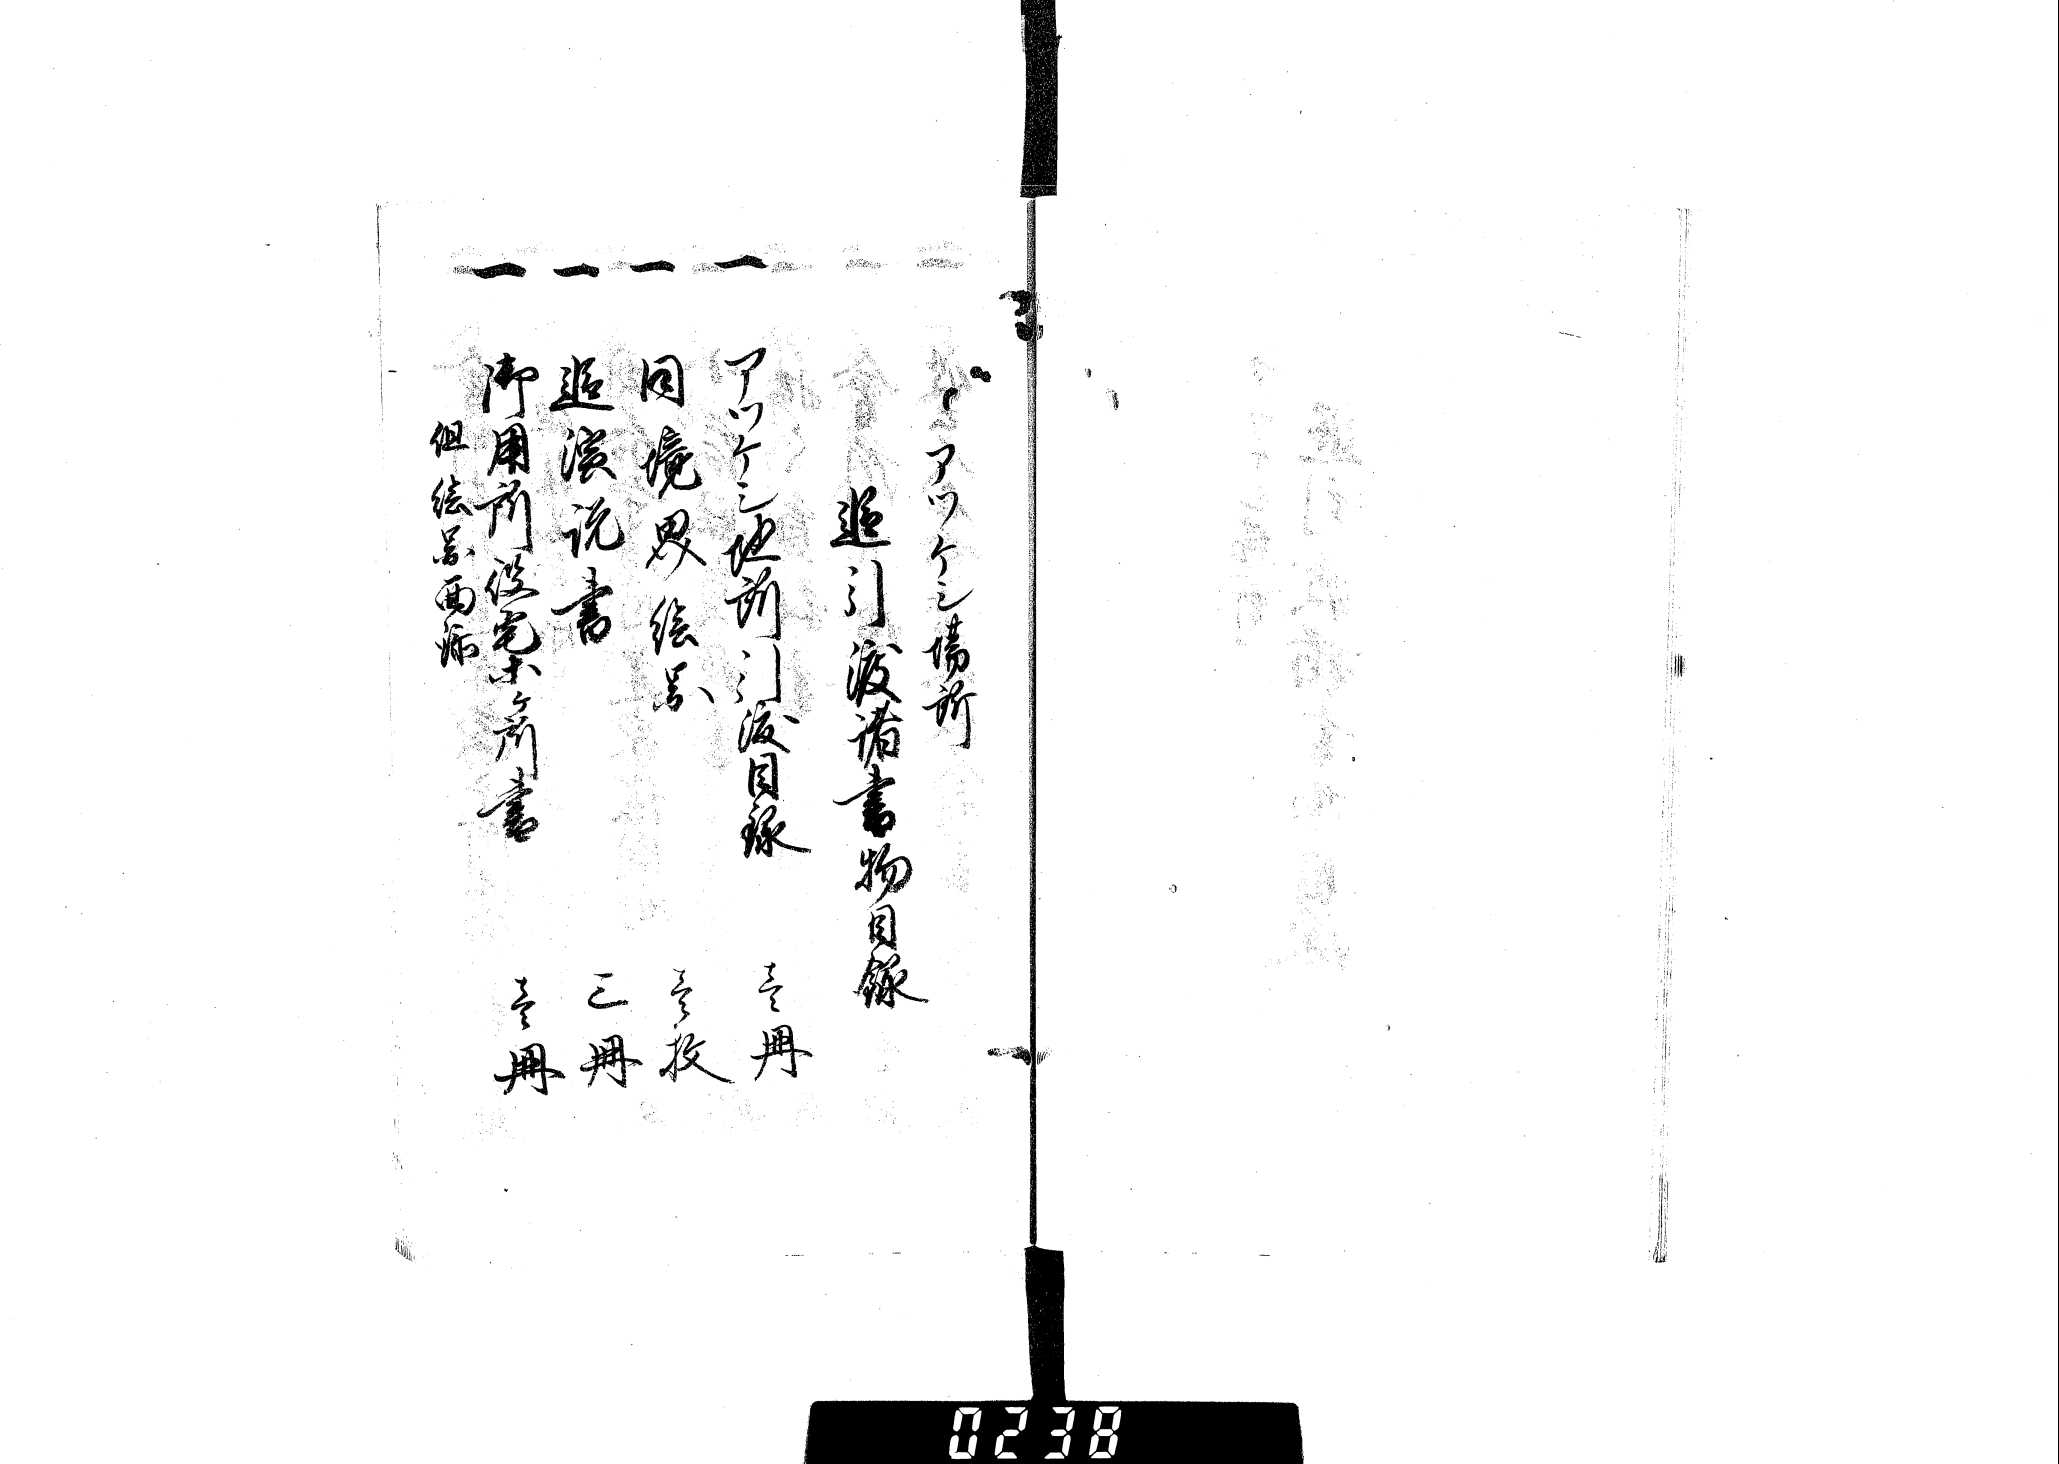 アツケシ場所
追引渡諸書物目録
一 アツケシ地所引渡目録 壱冊
一 同境界絵図 壱枚
一 追演説書 三冊
一 御用所役宅末ケ所書 壱冊
但絵図面添
0238